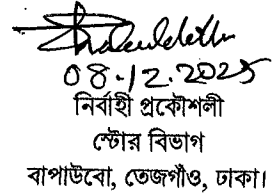 08.12.2025
নির্বাহী প্রকৌশলী
স্টোর বিভাগ
বাপাউবো, তেজগাঁও, ঢাকা।